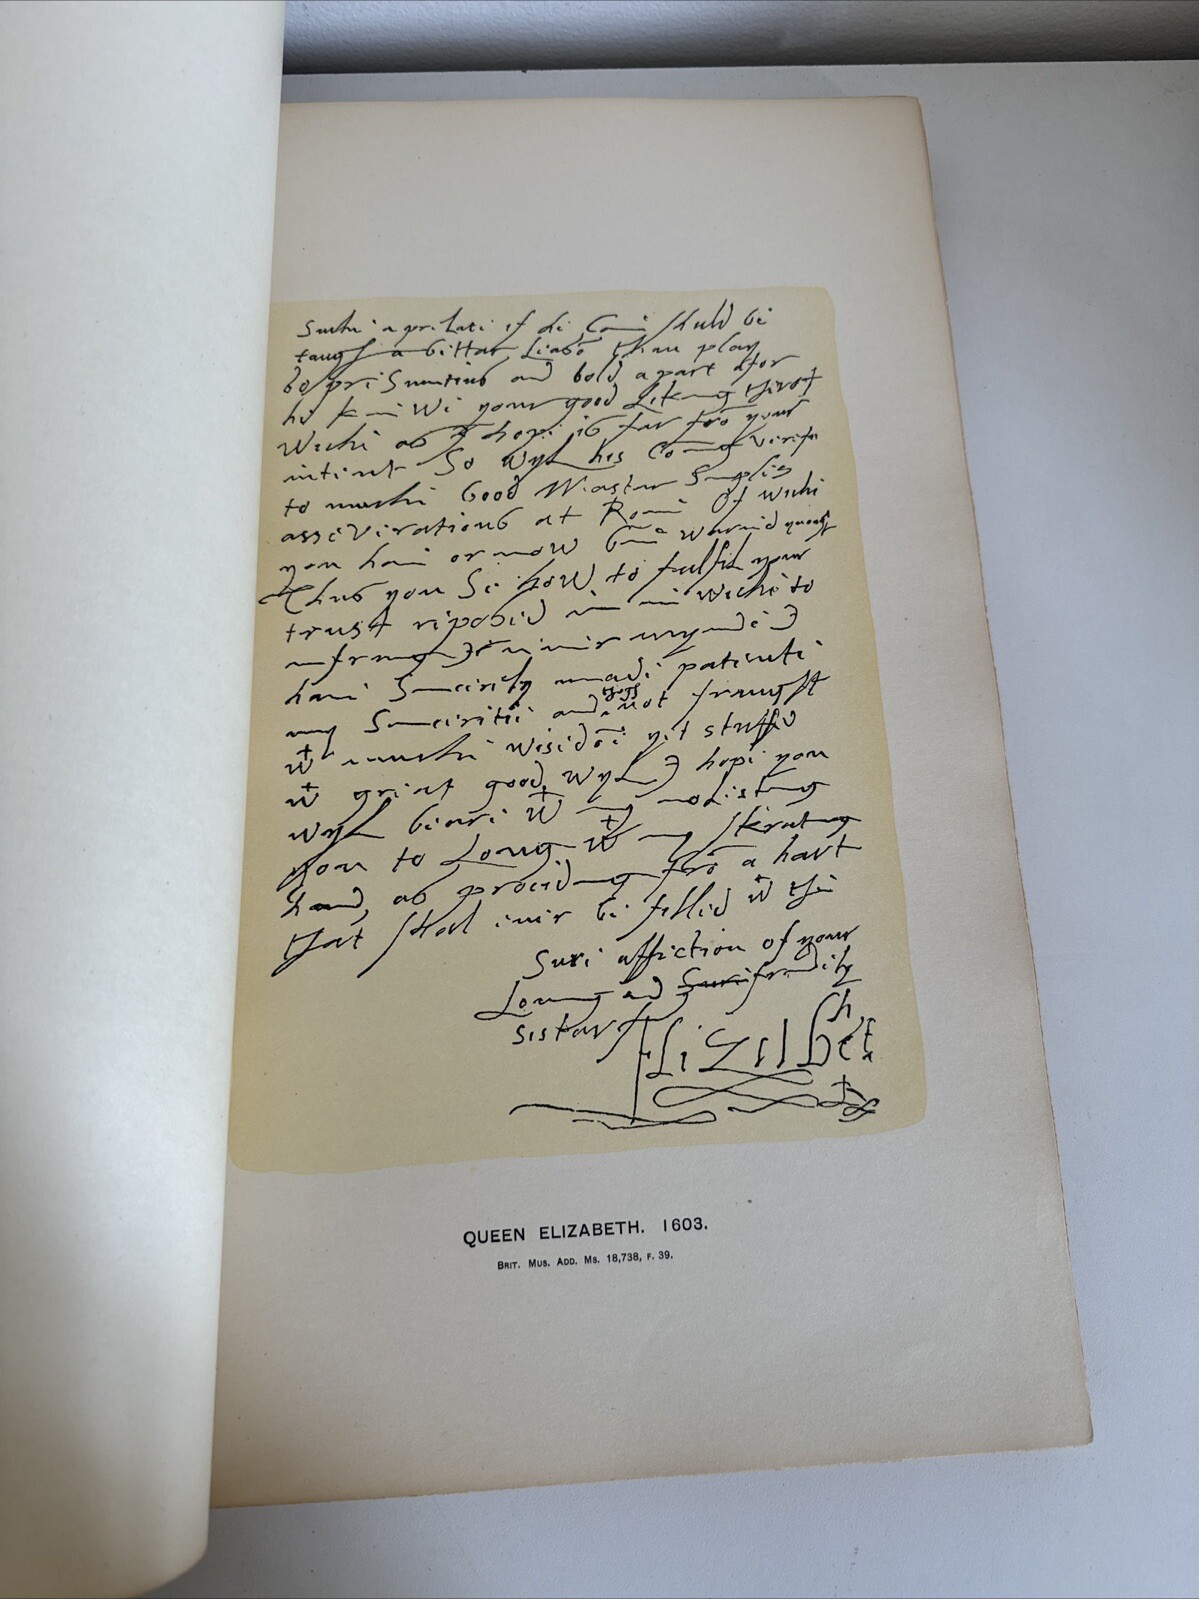 Suche a prelate if he Come shuld be
taugh a bettar Lesson than play
so presumtius and bold a part afor
he knewe your good Liking therof
Wiche as I hope is far from your
intent So wyl his Coming verifie
to muche Good Mastar Simples
asseverations at Rome Of wiche
you have or now bene warnid
Thus you Se how to fulfil your
trust reposed in me wiche to
infringe I never mynde I
have Sincerely made patente
my Sinceritie and thogh not fraught
wt muche wisedome yet stuffed
wt great good wyl I hope you
wyl beare wt my molesting
you to Long wt my skrating
hand, as proceding from a hart
that shal ever be filled wt the
Sure affection of your
Loving and frendely
sistar
Elizabeth R
QUEEN ELIZABETH. 1603.
BRIT. MUS. ADD. MS. 18,738, F. 39.